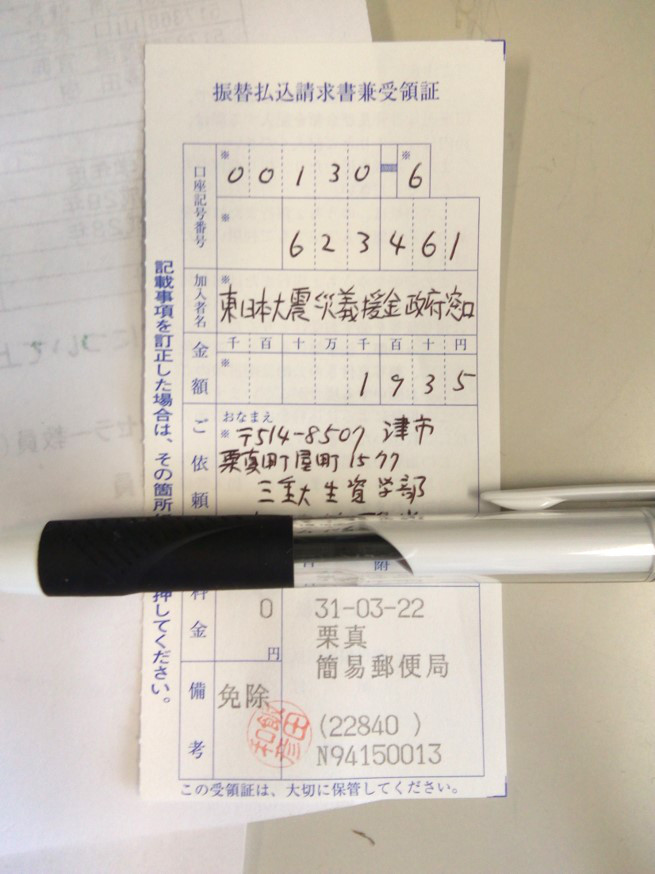 振替払込請求書兼受領証
口座記号番号
※ 00130-※6
※ 623461
加入者名
※ 東日本大震災義援金政府窓口
金額
千 百 十 万 千 百 十 円
※ 1935
ご依頼
おなまえ
※ 〒514-8507 津市
栗真町屋町1577
三重大生資学部
附
料金
0
円
31-03-22
栗真
簡易郵便局
備考
免除
(22840 )
N94150013
この受領証は、大切に保管してください。
記載事項を訂正した場合は、その箇所
押してください。